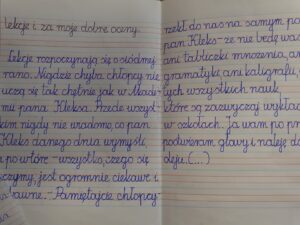 lekcje i za moje dobre oceny.
Lekcje rozpoczynają się o siódmej
rano. Nigdzie chyba chłopcy nie
uczą się tak chętnie jak w Akade-
mii pana Kleksa. Przede wszyst-
kim nigdy nie wiadomo, co pan
Kleks danego dnia wymyśli,
a po wtóre - wszystko, czego się
uczymy, jest ogromnie ciekawe i
zabawne. - Pamiętajcie chłopcy
rzekł do nas na samym po
pan Kleks - że nie będę was
ani tabliczki mnożenia, ani
gramatyki, ani kaligrafii,
tych wszystkich nauk,
które są zazwyczaj wykła
w szkołach. Ja wam po pr
pootwieram głowy i naleję do
oleju. (...)